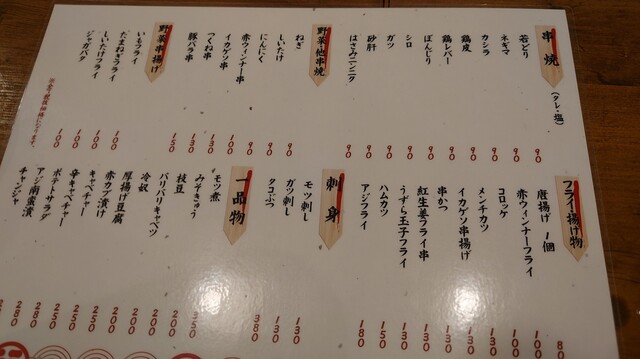 串焼
(タレ・塩)
若どり 90
ネギマ 90
カシラ 90
鶏皮 90
鶏レバー 90
ぼんじり 90
シロ 90
ガツ 90
砂肝 90
はさみニンニク 90
野菜他串焼
ねぎ 90
しいたけ 90
にんにく 90
赤ウィンナー串 90
イカゲソ串 100
つくね串 130
豚バラ串 130
野菜串揚げ 150
いもフライ 100
たまねぎフライ 100
しいたけフライ 100
ジャガバタ 100
※全て税抜価格になります。
フライ揚げ物
唐揚げ 1個 8
赤ウィンナーフライ 100
コロッケ 100
メンチカツ 130
イカゲソ串揚げ 130
串かつ 130
紅生姜フライ串 130
うずら玉子フライ 130
ハムカツ 150
アジフライ 180
刺身
モツ刺し 130
ガツ刺し 130
タコぶつ 380
一品物
モツ煮 350
みそきゅう 200
枝豆 200
冷奴 200
パリパリキャベツ 200
厚揚げ豆腐 250
赤カブ漬け 250
キャベチャー 250
辛キャベチャー 250
ポテトサラダ 250
アジ南蛮漬 280
チャンジャ 280